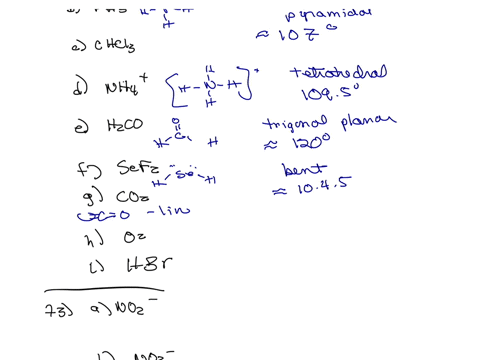 pyramidal
≈ 107°
c) CHCl3
d) NH4+ [H-N-H]+ tetrahedral
H
H
109.5°
e) H2CO trigonal planar
O
C
H H
≈ 120°
f) SeF2 bent
H Se H
≈ 10.4.5
g) CO2
O=C=O - lin
h) O2
i) HBr
73) a) NO2-
b) NO3-